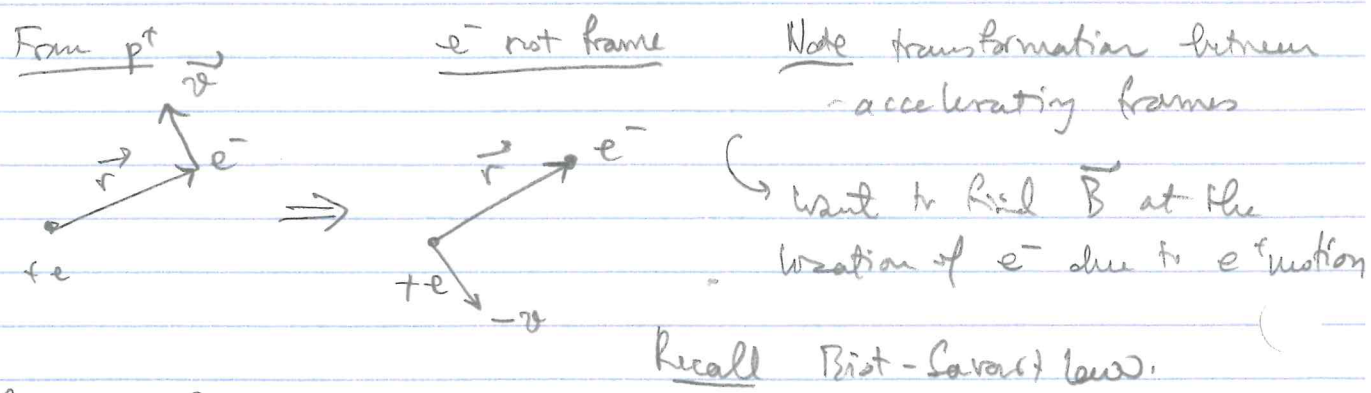 From p⁺ e⁻ rest frame Note transformation between
v⃗ accelerating frames
r⃗ e⁻ r⃗ e⁻
want to find B⃗ at the
+e ⇒ +e location of e⁻ due to e⁺ motion
-v
Recall Biot-Savart law.